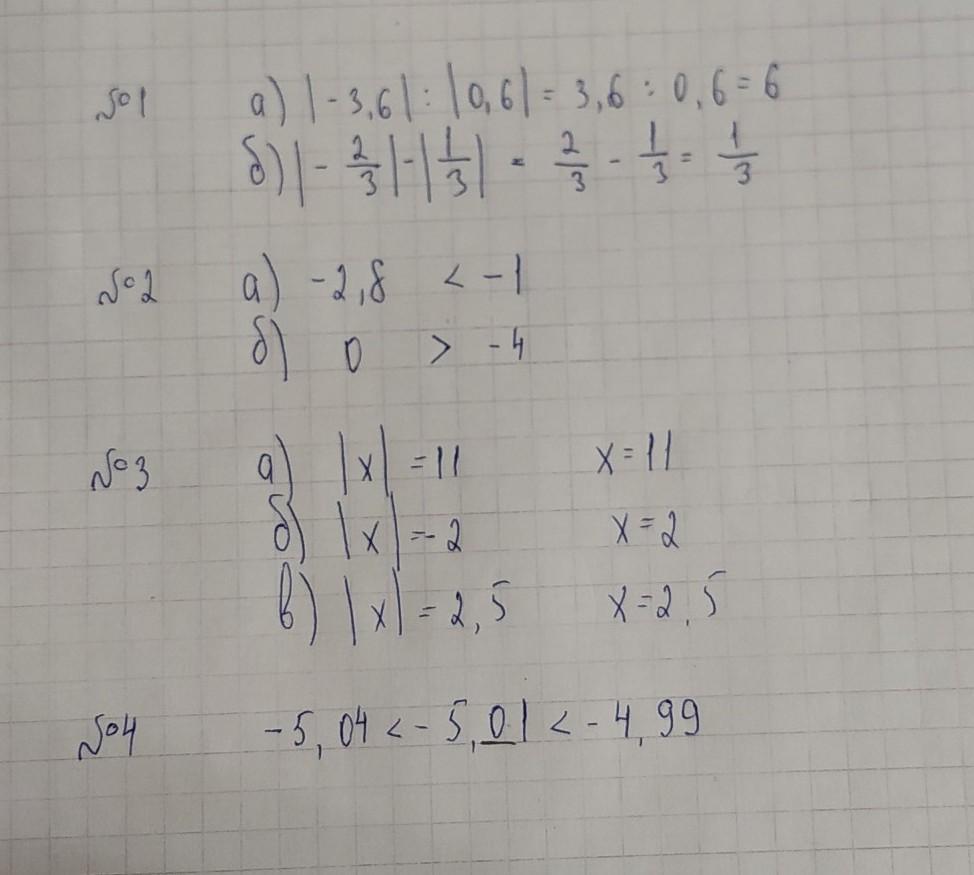 №1 а) |-3,6| : |0,6| = 3,6 : 0,6 = 6
б) |-2/3| - |1/3| = 2/3 - 1/3 = 1/3
№2 а) -2,8 < -1
б) 0 > -4
№3 а) |x| = 11 x = 11
б) |x| = -2 x = 2
в) |x| = 2,5 x = 2,5
№4 -5,04 < -5,01 < -4,99